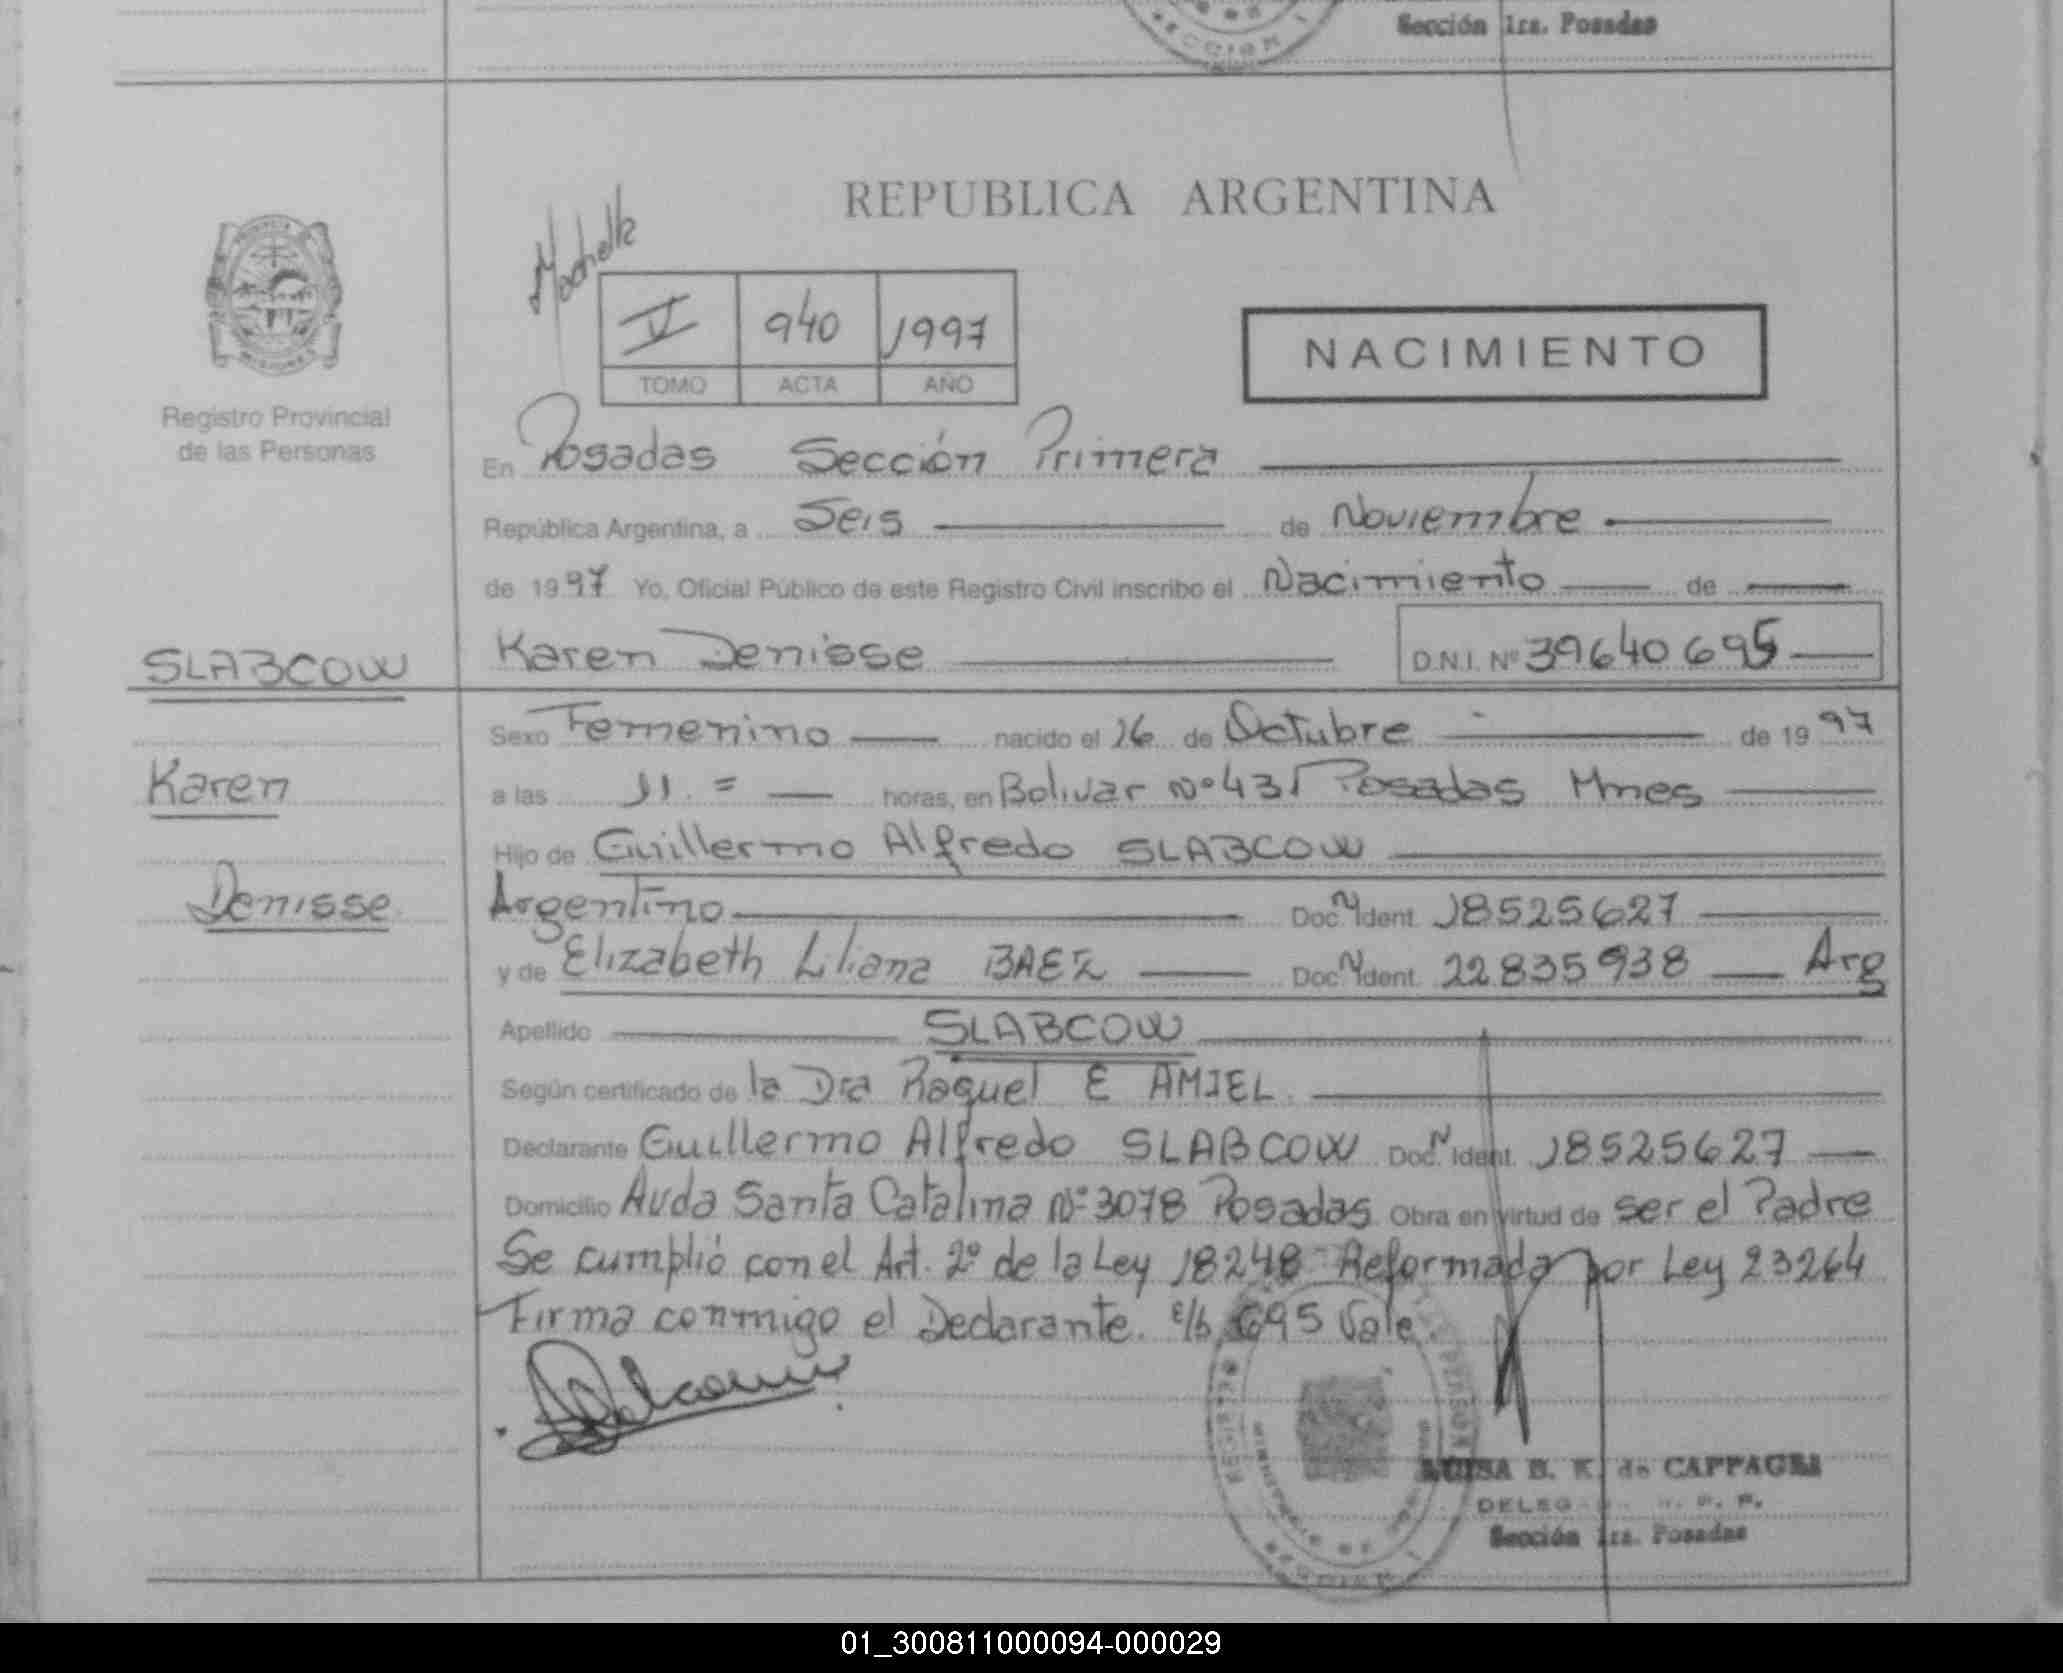 Sección 1ra. Posadas
REPUBLICA ARGENTINA
V 940 1997
TOMO ACTA AÑO
NACIMIENTO
Registro Provincial
de las Personas
En Posadas Sección Primera
República Argentina, a Seis de Noviembre
de 1997 Yo, Oficial Público de este Registro Civil inscribo el Nacimiento de
SLABCOW
Karen Denisse D.N.I. Nº 39640695
Sexo Femenino nacido el 26 de Octubre de 1997
Karen
a las 11 = horas, en Bolivar Nº 431 Posadas Mnes
Hijo de Guillermo Alfredo SLABCOW
Denisse
Argentino Doc. N Ident. 18525627
y de Elizabeth Liliana BAEZ Doc. N Ident. 22835938 Arg
Apellido SLABCOW
Según certificado de la Dra Raquel E AMIEL
Declarante Guillermo Alfredo SLABCOW Doc. N Ident. 18525627
Domicilio Avda Santa Catalina Nº 3078 Posadas Obra en virtud de ser el Padre
Se cumplió con el Art. 2º de la Ley 18248 Reformada por Ley 23264
Firma conmigo el Declarante. e/b 695 Vale.
B. K. de CAPPAGLI
Sección 1ra. Posadas
01_300811000094-000029